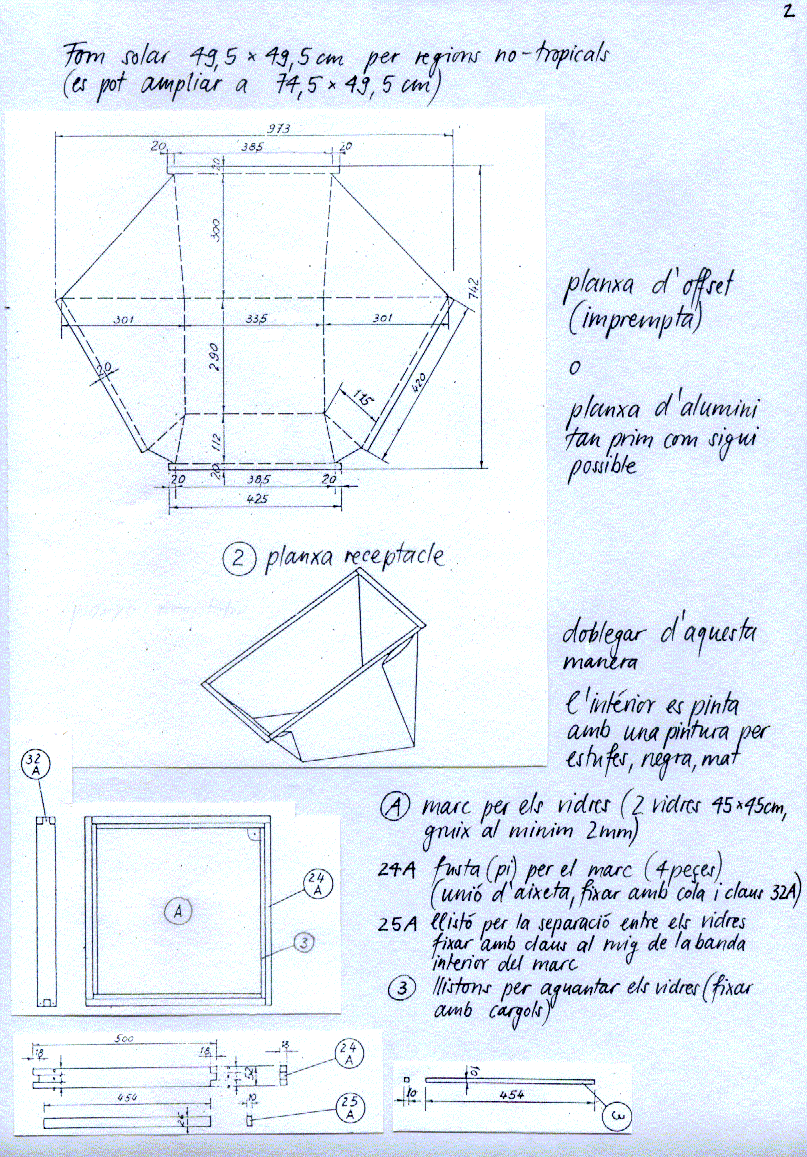 2
Forn solar 49,5 × 49,5 cm per regions no-tropicals
(es pot ampliar a 74,5 × 49,5 cm)
973
20 385 20
20
300
742
301 335 301
290
20
115
420
112
20
20 385 20
425
planxa d'offset
(imprempta)
o
planxa d'alumini
tan prim com sigui
possible
2 planxa receptacle
doblegar d'aquesta
manera
l'intérior es pinta
amb una pintura per
estufes, negra, mat
32
A
24
A
A
3
A marc per els vidres (2 vidres 45×45cm,
gruix al minim 2mm)
24A fusta (pi) per el marc (4 peçes)
(unió d'aixeta, fixar amb cola i claus 32A)
25A llistó per la separació entre els vidres
fixar amb claus al mig de la banda
interior del marc
3 llistons per aguantar els vidres (fixar
amb cargols)
500
18 18
52
18
24
A
454
26
10
25
A
10
10
454
3